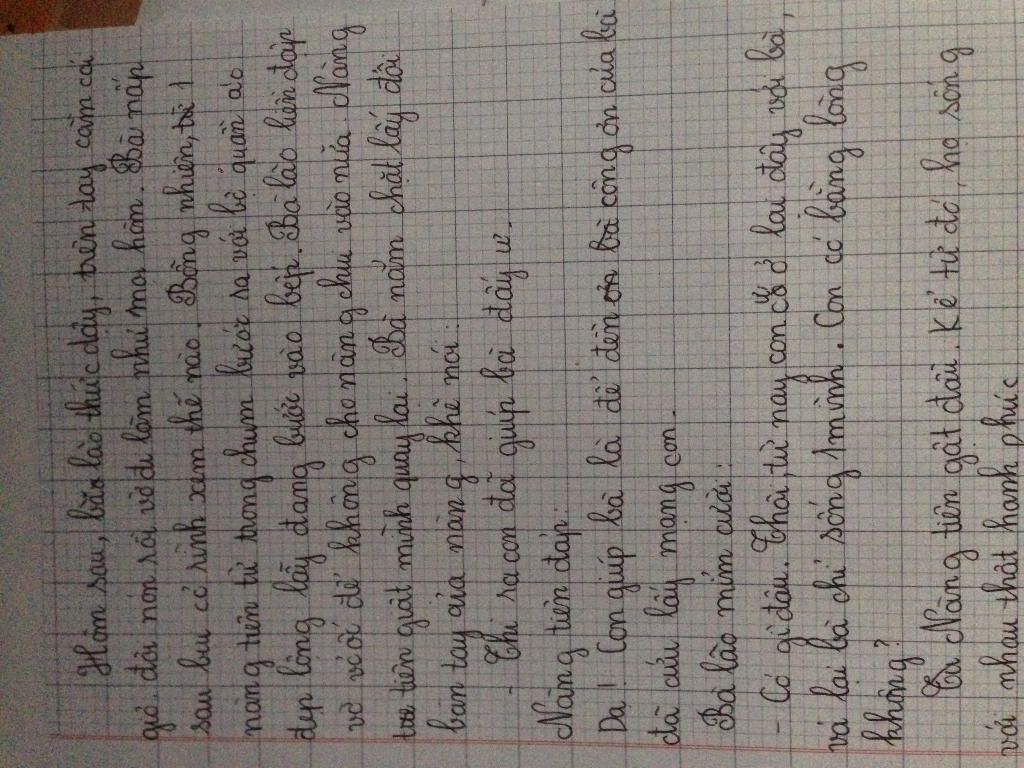 Hôm sau, bà lão thức dậy, trên tay cầm cái
giỏ, đội nón rồi vờ đi làm như mọi hôm. Bà nấp
sau bụi cỏ rình xem thế nào. Bỗng nhiên, từ
nàng tiên từ trong chum bước ra với bộ quần áo
đẹp lộng lẫy đang bước vào bếp. Bà lão liền đập
vỡ vỏ ốc để không cho nàng chui vào nữa. Nàng
tiên giật mình quay lại. Bà nắm chặt lấy đôi
bàn tay của nàng, khẽ nói:
- Thì ra con đã giúp bà đấy ư.
Nàng tiên đáp:
Dạ! Con giúp bà là để đền ơn bà công ơn của bà
đã cứu lấy mạng con.
Bà lão mỉm cười:
- Có gì đâu. Thôi, từ nay con cứ ở lại đây với bà,
vả lại bà chỉ sống 1 mình. Con có bằng lòng
không?
Ta Nàng tiên gật đầu. Kể từ đó, họ sống
với nhau thật hạnh phúc